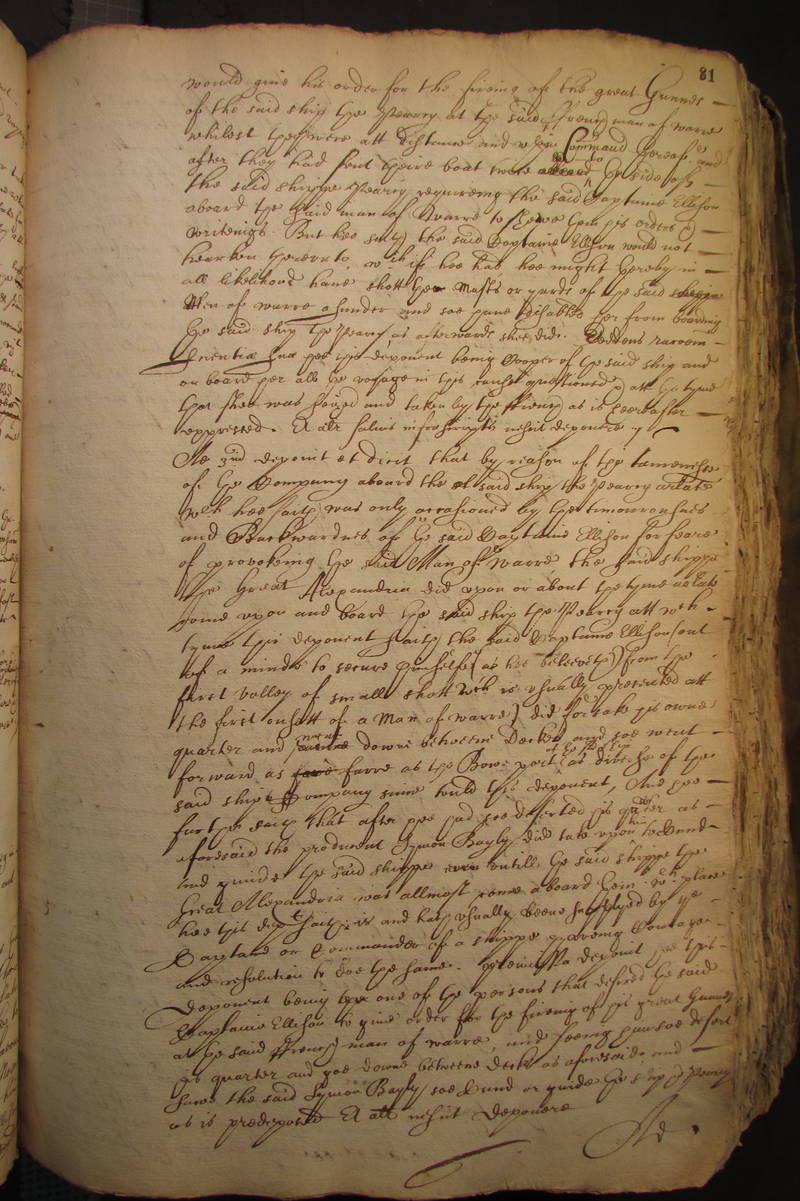 81
would give his order for the fireing of the great Gunnes
of the said ship the Pearey at the said ffrench man of warre
whilest they were att distance and when Command thereof and
after they had sent theire boat to the side of
the said shippe Pearey requireing the said Captaine Ellison
aboard the said man of Warre to shewe them his orders
writeings. But hee saith the said Captaine Ellison would not
hearken thereunto, which if hee had, hee might thereby in
all likelihood have shott the Masts or yards of the said
Man of warre asunder and soe have disabled her from boarding
the said ship the Pearey as afterwards shee did. Reddens racoem
scientiae sua hee this deponent being Cooper of the said ship and
on board her all the voyage in this cause questioned att the tyme
that shee was seized and taken by the ffrench as is heereafter
expressed. Et alr salvis infrascriptis nescit deponere
Ad 3um deponit et dicit that by reason of the tamenesse
of the Company aboard the said ship the Pearey arlate
wch hee saith was only occasioned by the timorousnes
and Backwardnes of the said Captaine Ellison for feare
of provokeing the said Man of Warre the said shippe
the Great Alexandria did upon or about the tyme arlate
come upon and board the said ship the Pearey att wch
tyme this deponent saith the said Captaine Ellison out
of a minde to secure himselfe (as hee beleeveth) from the
first volley of small shott wch is usually presented att
the first onsett of a Man of warre) did forsake his owne
quarter and went downe betweene Decks and soe went
forward as farre as the Bowe port of the ship as diverse of the
said ships Company since tould this deponent, And hee
further saith that after hee had soe deserted his quarter as
aforesaid the producent Symon Bayly did take upon him to Cund
and guide the said shippe untill the said shippe the
Great Alexandria was allmost come aboard them wch place
hee this dept saith is and hath usually beene supplyed by ye
Captaine or Commander of a shippe haveing Courage
and resolution to doe the same. Praemissa deponit hee this
deponent being one of the persons that desired the said
Captaine Ellison to give order for the fireing of his great Gunnes
at the said ffrench man of warre, and seeing him soe desert
his quarter and goe downe betweene decks as aforesaid and
sawe the said Symon Bayly soe Cund or guide the ship Pearey
as is predeposed Et alr nescit deponere
Ad